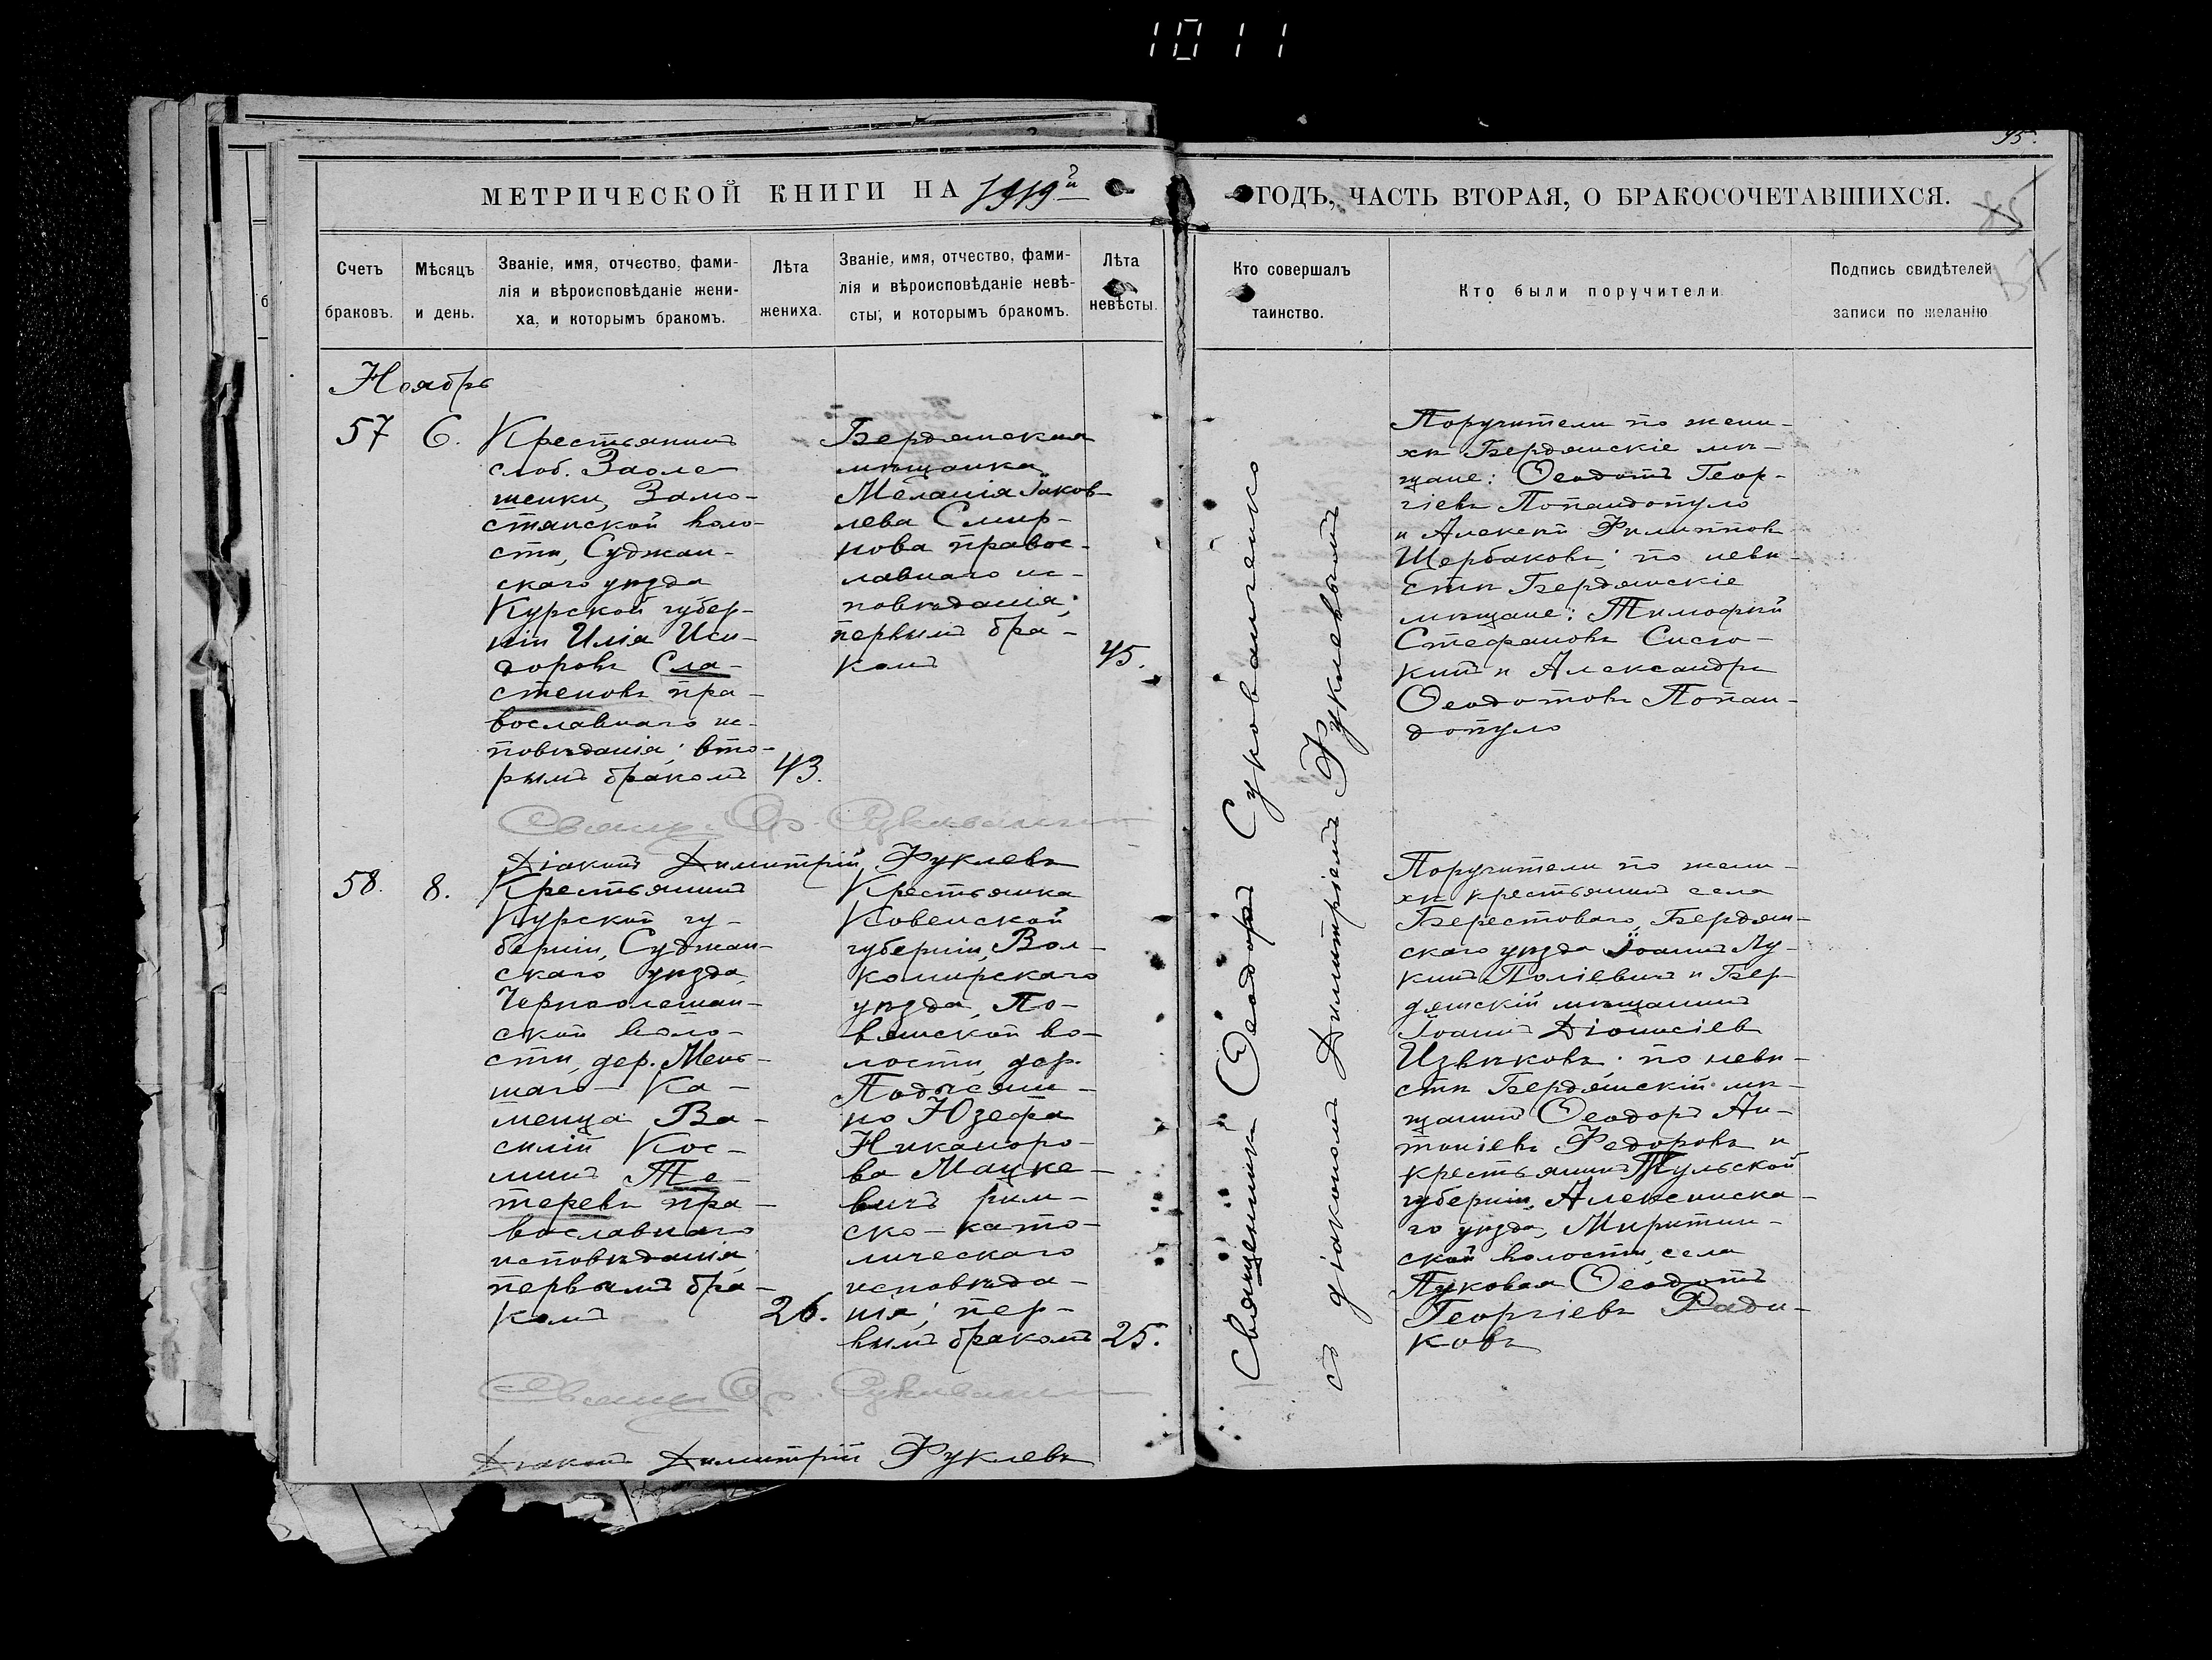 1011
95.
МЕТРИЧЕСКОЙ КНИГИ НА 1919й
ГОДЪ, ЧАСТЬ ВТОРАЯ, О БРАКОСОЧЕТАВШИХСЯ.
85
Счетъ
браковъ.
Мѣсяцъ
и день.
Званіе, имя, отчество, фами-
лія и вѣроисповѣданіе жени-
ха, и которымъ бракомъ.
Лѣта
жениха.
Званіе, имя, отчество, фами-
лія и вѣроисповѣданіе невѣ-
сты, и которымъ бракомъ.
Лѣта
невѣсты.
Кто совершалъ
таинство.
Кто были поручители
Подпись свидѣтелей
записи по желанію
Ноябрь
57
6.
Крестьянинъ
слоб. Заоле-
шенки, Замо-
стянской воло-
сти, Суджан-
скаго уѣзда
Курской губер-
ніи Илія Иси-
доровъ Сла-
стеновъ пра-
вославнаго ис-
повѣданія; вто-
рымъ бракомъ
43.
Бердянская
мѣщанка
Меланія Іаков-
лева Смир-
нова правос-
лавнаго ис-
повѣданія;
первымъ бра-
комъ
45.
Священникъ Ѳеодоръ Суковаченко
съ діакономъ Димитріемъ Фуклевымъ
Поручители по жени-
хѣ Бердянскіе мѣ-
щане: Ѳеодотъ Геор-
гіевъ Попандопуло
и Алексѣй Филипповъ
Щербаковъ; по невѣ-
стѣ Бердянскіе
мѣщане: Тимофей
Стефановъ Сисю-
кинъ и Александръ
Ѳеодотовъ Попан-
допуло
Діаконъ Димитрій Фуклевъ
58.
8.
Крестьянинъ
Курской гу-
берніи, Суджан-
скаго уѣзда,
Черноолешан-
ской воло-
сти, дер. Мень-
шаго Ка-
менца Ва-
силій Кос-
минъ Те-
теревъ пра-
вославнаго
исповѣданія
первымъ бра-
комъ
26.
Крестьянка
Ковенской
губерніи, Вол-
комирскаго
уѣзда, По-
вянской во-
лости, дер.
но Юзефа
Никаноро-
ва Мацке-
вичъ рим-
ско-като-
лическаго
исповѣда-
нія; пер-
вымъ бракомъ
25.
Поручители по жени-
хѣ крестьянинъ села
Берестоваго, Бердян-
скаго уѣзда Іоаннъ Лу-
кинъ Поліевинъ и Бер-
дянскій мѣщанинъ
Іоаннъ Діонисіев
Извѣковъ; по невѣ-
стѣ Бердянскій мѣ-
щанинъ Ѳеодоръ Ан-
тоніевъ Федоровъ и
крестьянинъ Тульской
губерніи, Алексинска-
го уѣзда, Миритин-
ской волости, села
Ѳеодотъ
Георгіевъ Ради-
ковъ
Діаконъ Димитрій Фуклевъ